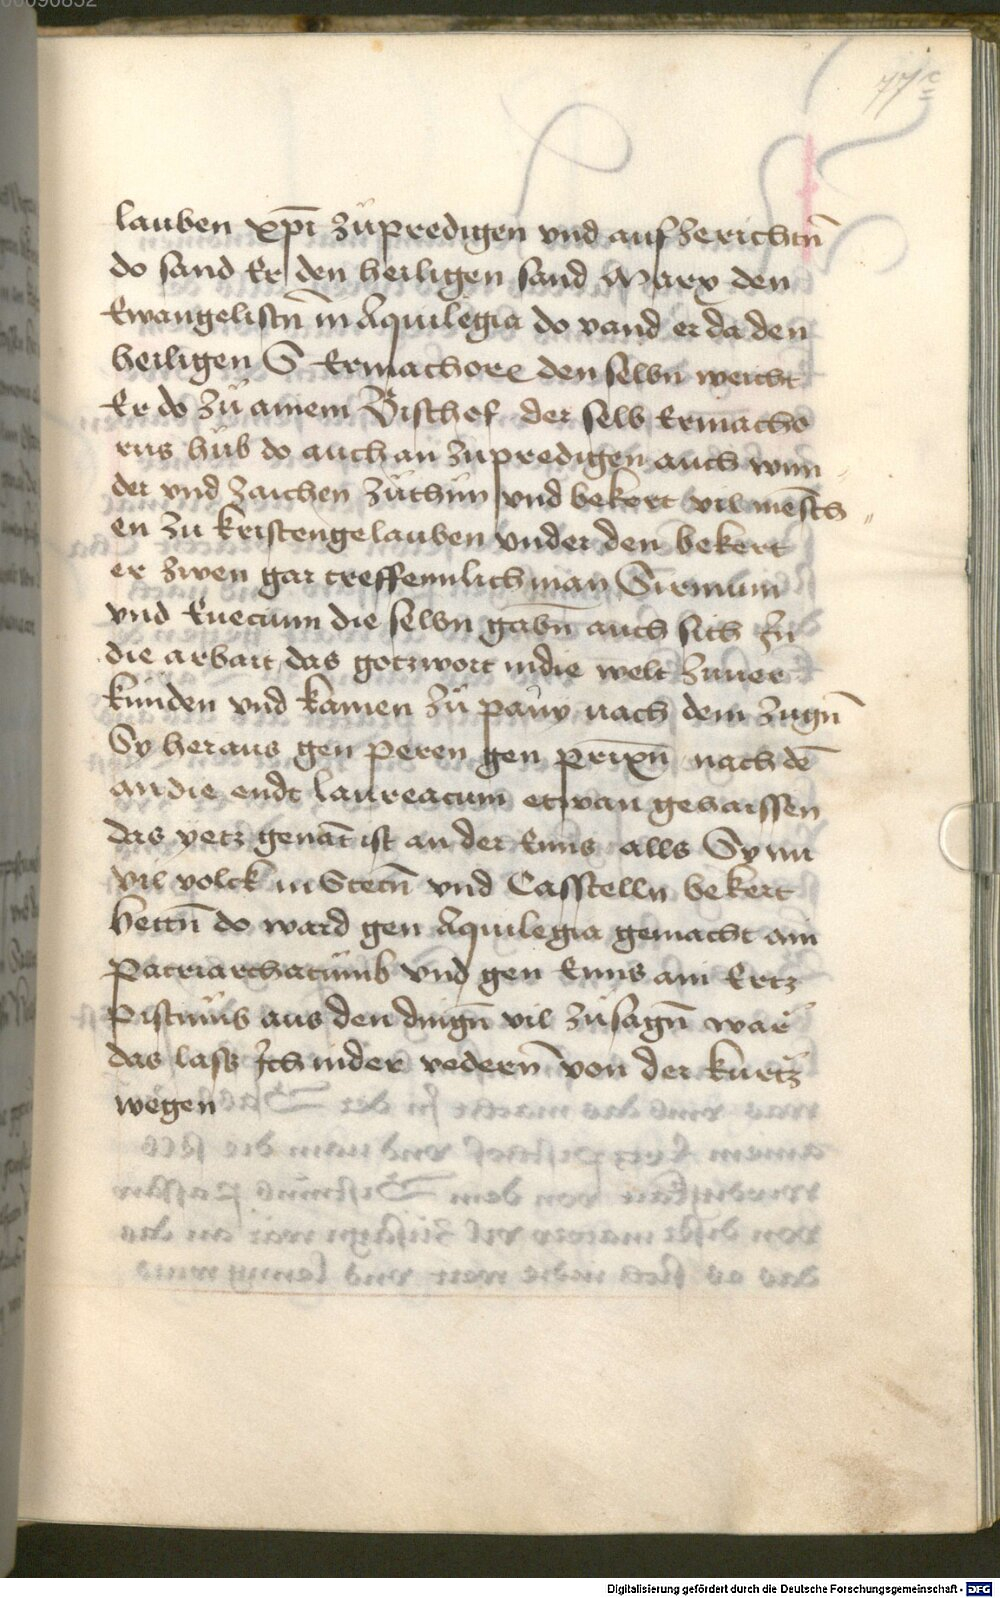 77r
lauben xp̄i zů predigen vnd auf zerichtn̄
do sand Er den heiligen sand Marx den
Ewangelistn̄ in Aquilegia do vand er da den
heiligen S Ermachore den selbn weicht
Er do zů ainem Bischof der selb Ermacho
rus hůb do auch an zupredigen auch wun
der vnd zaichen zůthůn vnd bekert vil mēsch
en zu kristengelauben vnder den bekert
er zwen gar treffennlich man Sirmum
vnd Euecium die selbn gabn̄ auch sich zu
die arbait das gotzwort in die welt zuuer
kunden vnd kamen zů pauy nach dem zugn̄
Sy heraus gen peren gen prixn̄ nach dē
an die endt laureacum etwan gehaissen
das yetz genāt ist an der Enns alls Sy nu
vil volck in Stetn̄ vnd Casstelln bekert
hettn̄ do ward gen Aquilegia gemacht ain
Patriarchatumb vnd gen Enns ain Ertz
Pistumb aus den dingn̄ vil zůsagn̄ wär
das lass Ich in der vedern̄ von der kurtz
wegen
Digitalisierung gefördert durch die Deutsche Forschungsgemeinschaft - DFG